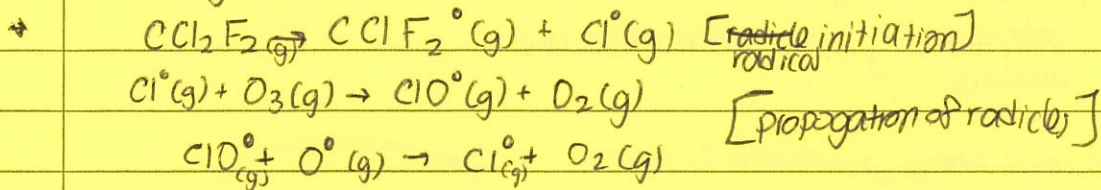 → CCl2F2(g) → CClF2°(g) + Cl°(g) [radicle initiation]
radical
Cl°(g) + O3(g) → ClO°(g) + O2(g)
[propogation of radicles]
ClO°(g) + O°(g) → Cl°(g) + O2(g)